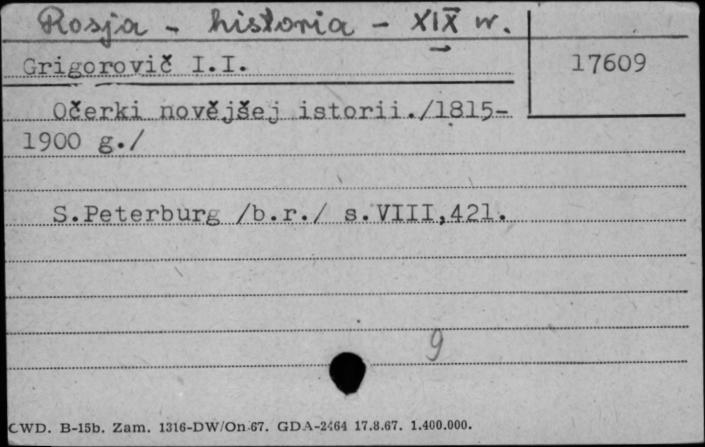 Rosja - historia - XIX w.
Grigorovič I.I.
17609
Očerki novějšej istorii./1815-
1900 g./
S.Peterburg /b.r./ s.VIII,421.
9
CWD. B-15b. Zam. 1316-DW/On-67. GDA-2464 17.8.67. 1.400.000.